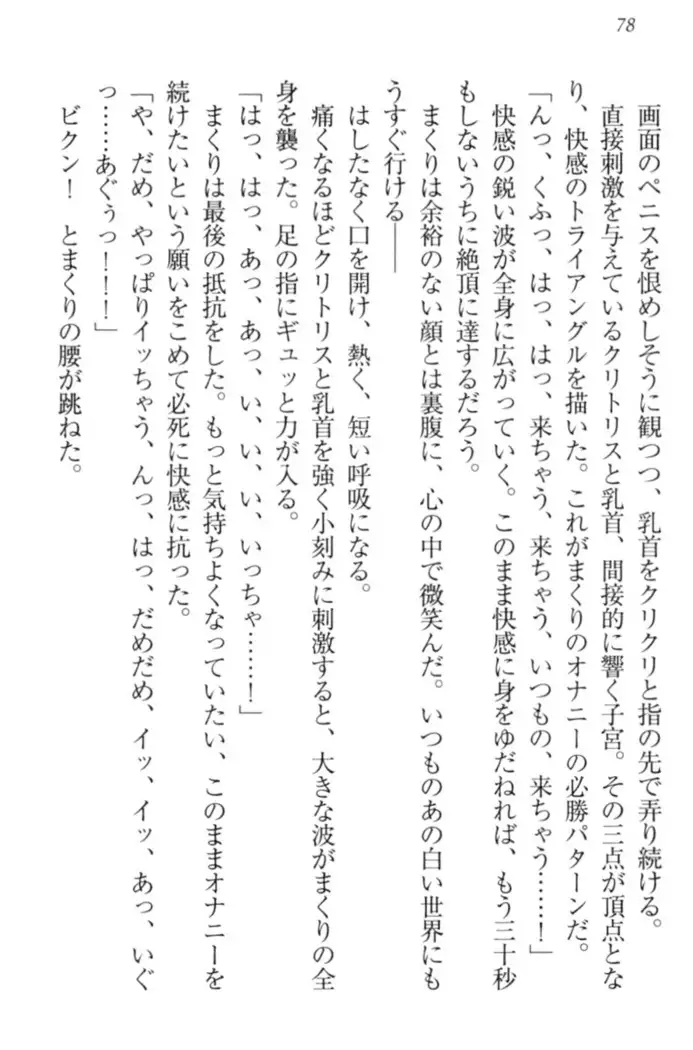 78
画面のペニスを恨めしそうに観つつ、乳首をクリクリと指の先で弄り続ける。
直接刺激を与えているクリトリスと乳首、間接的に響く子宮。その三点が頂点とな
り、快感のトライアングルを描いた。これがまくりのオナニーの必勝パターンだ。
「んっ、くふっ、はっ、はっ、来ちゃう、来ちゃう、いつもの、来ちゃう……！」
快感の鋭い波が全身に広がっていく。このまま快感に身をゆだねれば、もう三十秒
もしないうちに絶頂に達するだろう。
まくりは余裕のない顔とは裏腹に、心の中で微笑んだ。いつものあの白い世界にも
うすぐ行ける――
はしたなく口を開け、熱く、短い呼吸になる。
痛くなるほどクリトリスと乳首を強く小刻みに刺激すると、大きな波がまくりの全
身を襲った。足の指にギュッと力が入る。
「はっ、はっ、あっ、あっ、い、い、い、いっちゃ……！」
まくりは最後の抵抗をした。もっと気持ちよくなっていたい、このままオナニーを
続けたいという願いをこめて必死に快感に抗った。
「や、だめ、やっぱりイッちゃう、んっ、はっ、だめだめ、イッ、イッ、あっ、いぐ
っ……あぐぅっ！！！」
ビクン！　とまくりの腰が跳ねた。